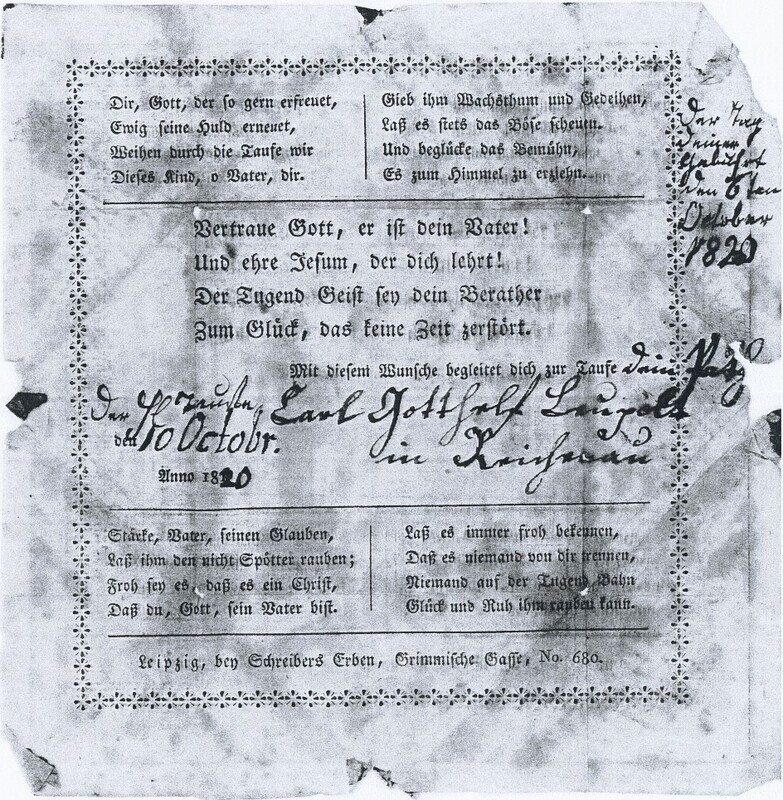 Dir, Gott, der so gern erfreuet,
Ewig seine Huld erneuet,
Weihen durch die Taufe wir
Dieses Kind, o Vater, dir.
Gieb ihm Wachsthum und Gedeihen,
Laß es stets das Böse scheuen.
Und beglücke das Bemühn,
Es zum Himmel zu erziehn.
der Tag
deiner
Gebuhrt
den 6ten
October
1820
Vertraue Gott, er ist dein Vater!
Und ehre Jesum, der dich lehrt!
Der Tugend Geist sey dein Berather
Zum Glück, das keine Zeit zerstört.
Mit diesem Wunsche begleitet dich zur Taufe dein Path
Carl Gotthelf Leupolt
in Reichenau
Der Taufe
den 10 Octobr.
Anno 1820
Stärke, Vater, seinen Glauben,
Laß ihm den nicht Spötter rauben;
Froh sey es, daß es ein Christ,
Daß du, Gott, sein Vater bist.
Laß es immer froh bekennen,
Daß es niemand von dir trennen,
Niemand auf der Tugend Bahn
Glück und Ruh ihm rauben kann.
Leipzig, bey Schreibers Erben, Grimmische Gasse, No. 680.